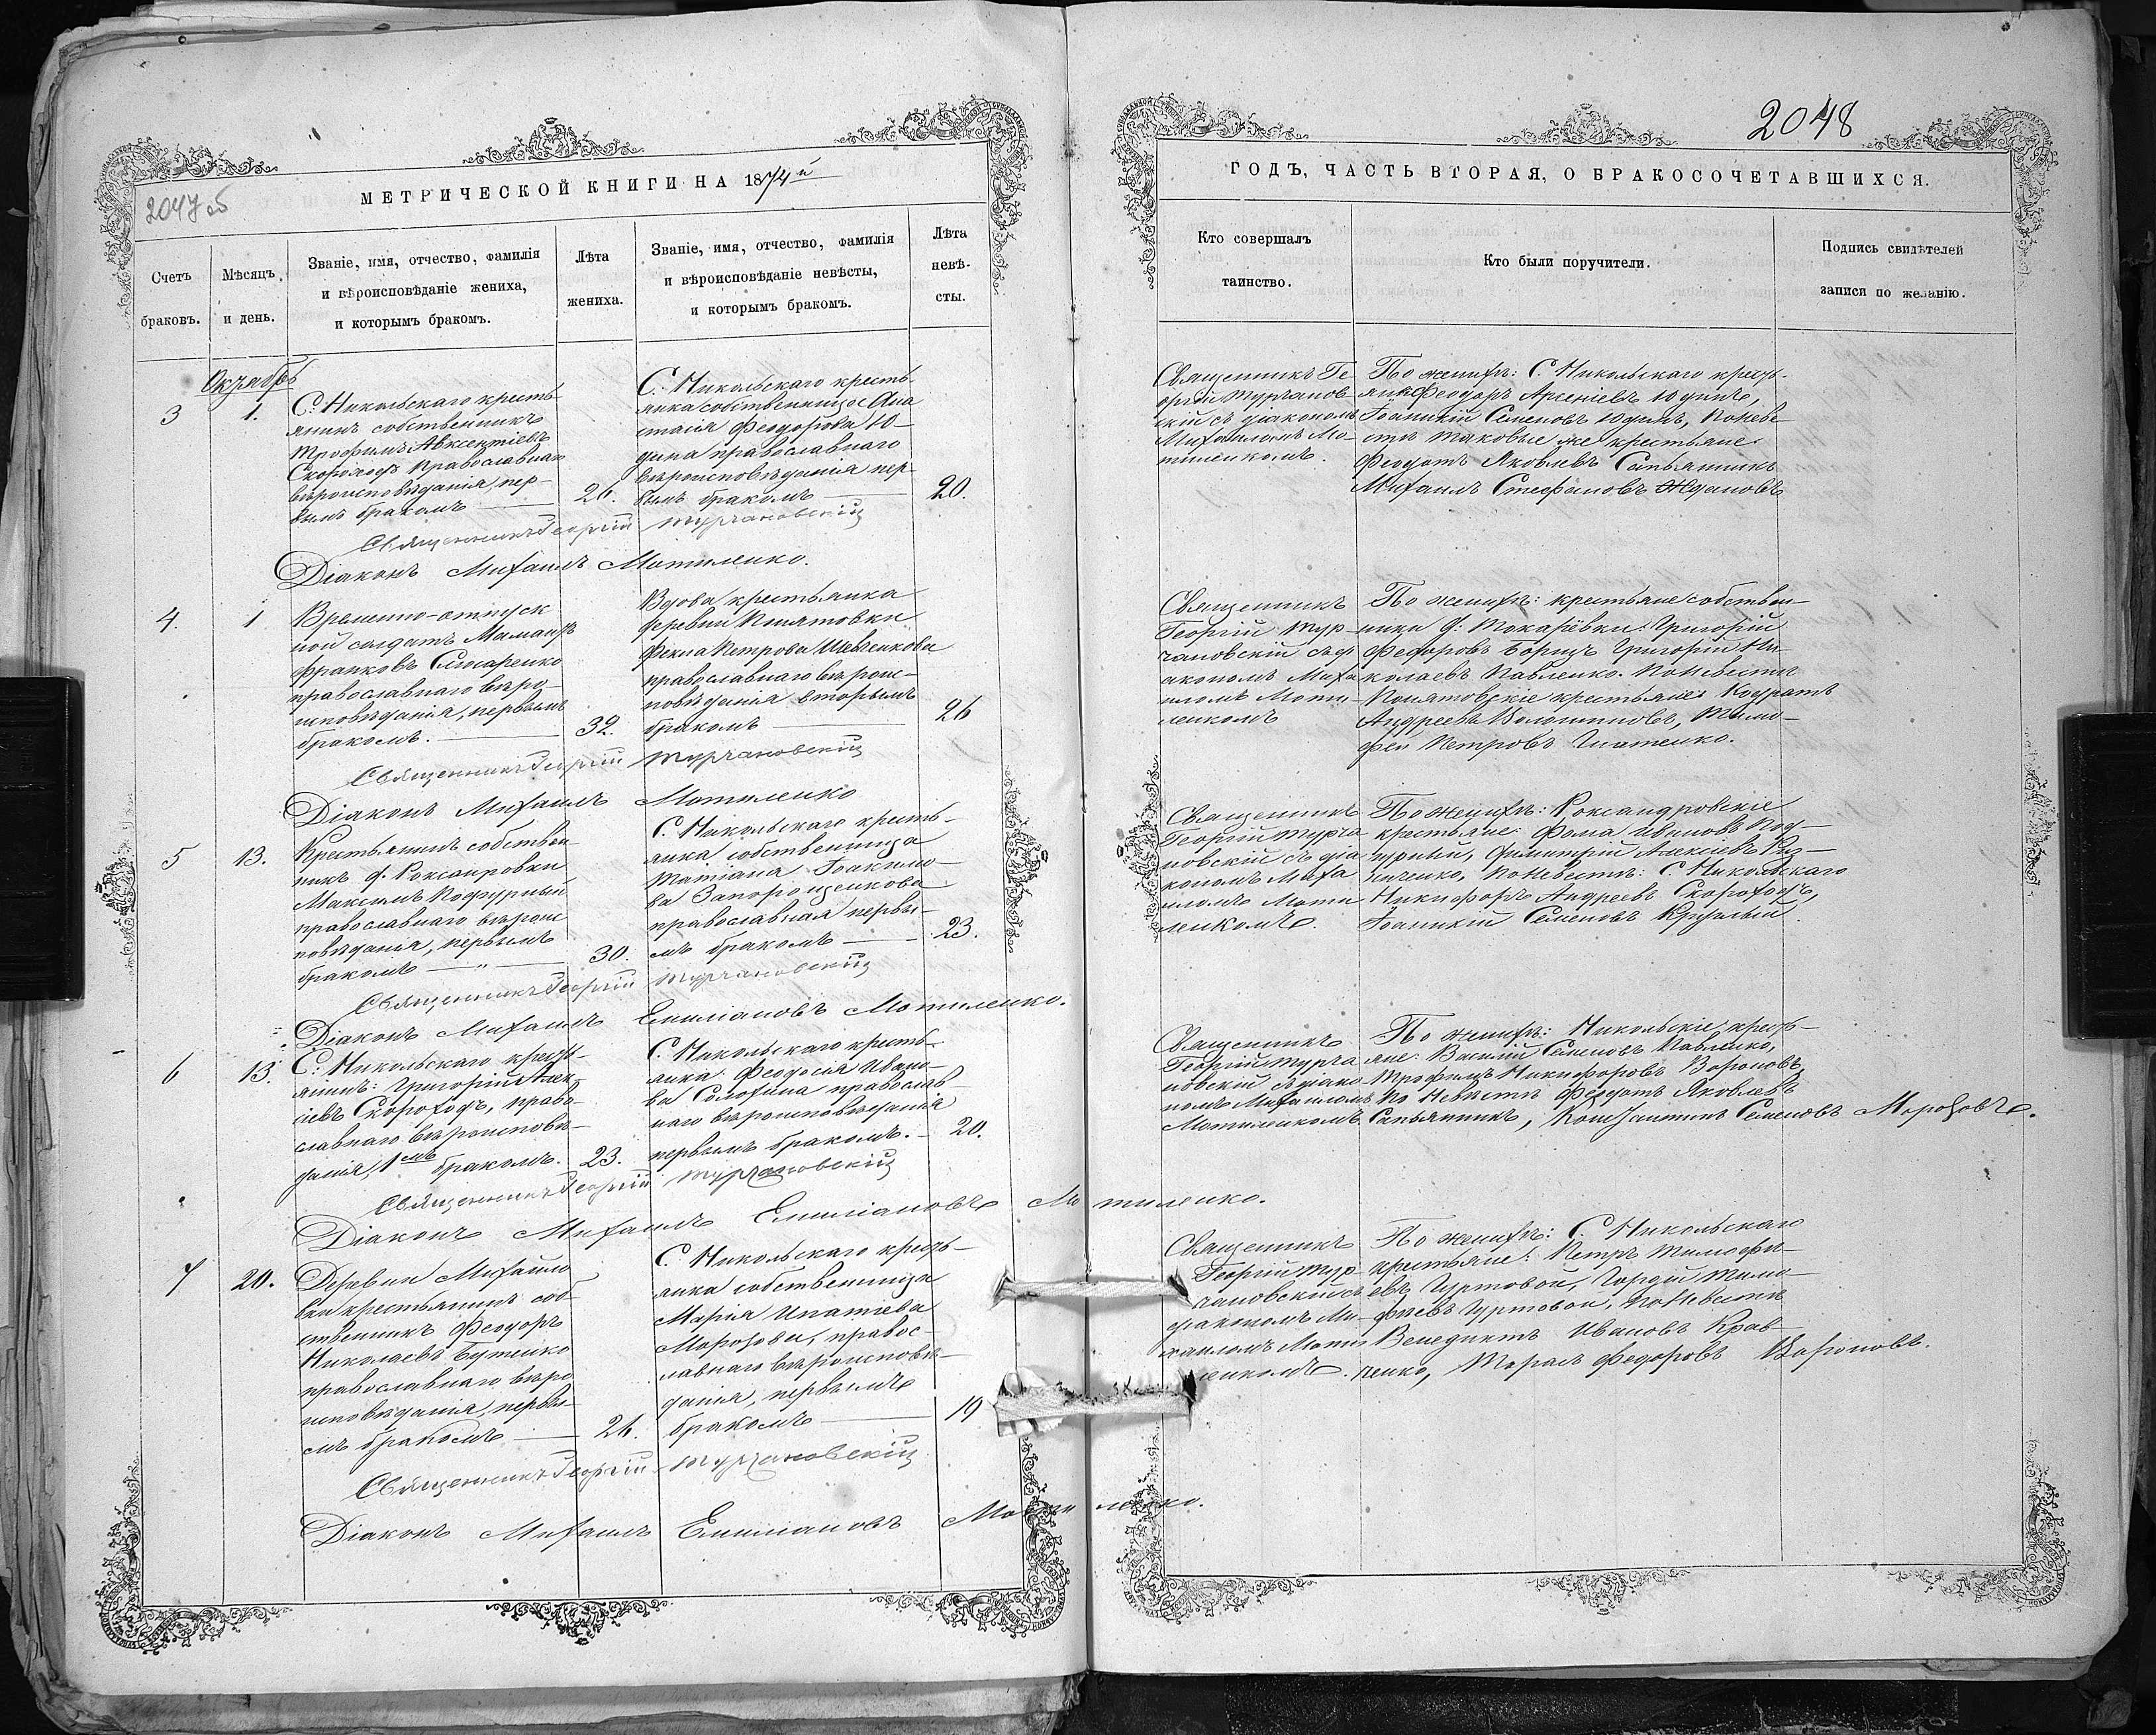 2047 об
МЕТРИЧЕСКОЙ КНИГИ НА 1874й
Счетъ браковъ.
Мѣсяцъ и день.
Званіе, имя, отчество, фамилія
и вѣроисповѣданіе жениха,
и которымъ бракомъ.
Лѣта
жениха.
Званіе, имя, отчество, фамилія
и вѣроисповѣданіе невѣсты,
и которымъ бракомъ.
Лѣта
невѣ-
сты.
Октябрь
3
1.
С. Никольскаго кресть-
янинъ собственникъ
Трофимъ Авксентіевъ
Скороходъ православнаго
вѣроисповѣданія, пер-
вымъ бракомъ
26.
С. Никольскаго кресть-
янка собственница Ана
стасія Феодорова Ю-
дина православнаго
вѣроисповѣданія пер-
вымъ бракомъ
20.
Священникъ Георгій Турчановскій
Діаконъ Михаилъ Мотиленко.
4
1
Временно-отпуск
ной солдатъ
Франковъ Слюсаренко
православнаго вѣро-
исповѣданія, первымъ
бракомъ.
32.
Вдова крестьянка
деревни Понятовки
Фекла Петрова Шевченкова
православнаго вѣроис-
повѣданія вторымъ
бракомъ
26
Священникъ Георгій Турчановскій
Діаконъ Михаилъ Мотиленко
5
13.
Крестьянинъ собствен
никъ д. Роксандровки
Максимъ Подгурный
православнаго вѣроис
повѣданія, первымъ
бракомъ
30.
С. Никольскаго кресть-
янка собственница
Татіана Іоакимо-
ва Запорощенкова
православная первы-
мъ бракомъ
23.
Священникъ Георгій Турчановскій
Діаконъ Михаилъ Емиліановъ Мотиленко.
6
13.
С. Никольскаго кресть-
янинъ: Григорій Алек
іевъ Скороходъ, право-
славнаго вѣроисповѣ-
данія, 1мъ бракомъ.
23.
С. Никольскаго кресть-
янка: Феодосія Ивано-
ва Солохина православ-
наго вѣроисповѣданія
первымъ бракомъ.
20.
Священникъ Георгій Турчановскій
Діаконъ Михаилъ Емиліановъ Мотиленко.
7
20.
Деревни Михайло
вки крестьянинъ соб-
ственникъ Феодоръ
Николаевъ Бутенко
православнаго вѣро
исповѣданія, первы-
мъ бракомъ
26.
С. Никольскаго кресть-
янка собственница
Марія Ипатіева
Морозова, правос-
лавнаго вѣроисповѣ-
данія, первымъ
бракомъ
19
Священникъ Георгій Турчановскій
Діаконъ Михаилъ Емиліановъ Мотиленко.
2048
ГОДЪ, ЧАСТЬ ВТОРАЯ, О БРАКОСОЧЕТАВШИХСЯ.
Кто совершалъ
таинство.
Кто были поручители.
Подпись свидѣтелей
записи по желанію.
Священникъ Ге
оргій Турчанов
скій съ діакономъ
Михаиломъ Мо-
тиленкомъ.
По женихѣ: С. Никольскаго кресть-
яни Феодоръ Арсеніевъ Юдинъ,
Іоаникій Семеновъ Юдинъ, по неве-
стѣ таковые же крестьяне
Феодотъ Яковлевъ Сапьянникъ
Михаилъ Стефановъ Ждановъ
Священникъ
Георгій Тур-
чановскій съ ді
акономъ Миха
иломъ Моти-
ленкомъ
По женихѣ: крестьяне собствен-
ники д. Токарёвки: Григорій
Федоровъ Борищ Григорій Ни-
колаевъ Павленко. По невѣстѣ
Понятовскіе крестьяне: Кодратъ
Андреевъ Волошиновъ, Тимо-
фей Петровъ Гнатенко.
Священникъ
Георгій Турча
новскій съ діа
кономъ Миха
иломъ Моти
ленкомъ.
По женихѣ: Роксандровскіе
крестьяне: Фома Ивановъ Под-
гурный, Димитрій Алексіевъ
по невѣстѣ: С. Никольскаго
Никифоръ Андреевъ Скороходъ,
Іоаникій Семеновъ Круглый.
Священникъ
Георгій Турча
новскій съ діако
номъ Михаиломъ
Мотиленкомъ
По женихѣ: Никольскіе кресть-
яне: Василій Семеновъ Павленко,
Трофимъ Никифоровъ Вороновъ,
по невѣстѣ Феодотъ Яковлевъ
Сапьянникъ, Константинъ Семеновъ Морозовъ.
Священникъ
Георгій Тур-
чановскій съ
діакономъ Ми-
хаиломъ Моти
ленкомъ.
По женихѣ: С. Никольскаго
крестьяне: Петръ Тимофе-
евъ Гуртовой, Гордѣй Тимо-
фѣевъ Гуртовой, по невѣстѣ
Венедиктъ Ивановъ Крав-
ченко, Тарасъ Федоровъ Вороновъ.